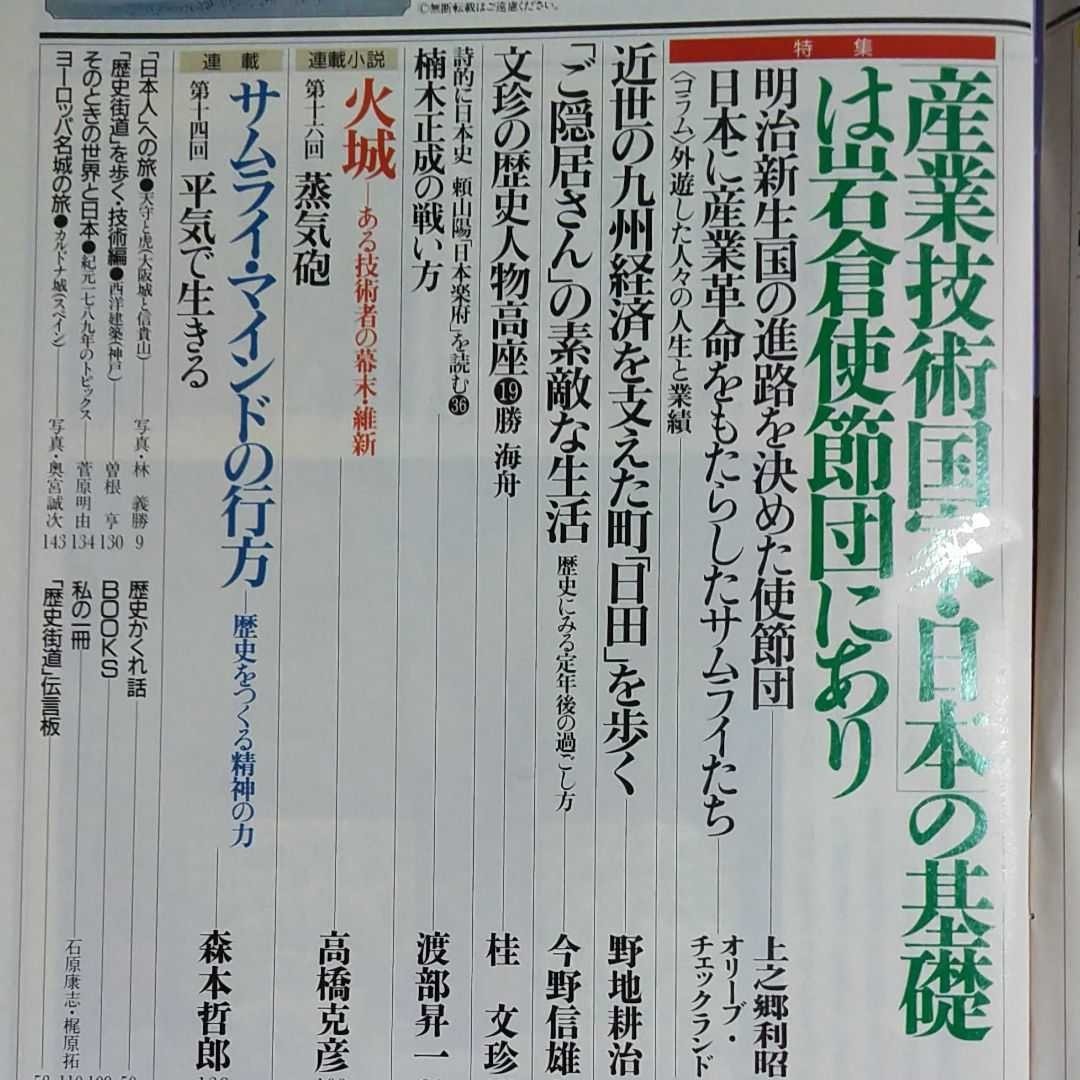 ©無断転載はご遠慮ください。
特集
「産業技術国家・日本」の基礎
は岩倉使節団にあり
明治新生国の進路を決めた使節団
上之郷利昭
日本に産業革命をもたらしたサムライたち
オリーブ・
チェックランド
〈コラム〉外遊した人々の人生と業績
近世の九州経済を支えた町「日田」を歩く
野地耕治
「ご隠居さん」の素敵な生活 歴史にみる定年後の過ごし方
今野信雄
文珍の歴史人物高座⑲勝 海舟
桂 文珍
詩的に日本史 頼山陽「日本楽府」を読む㊱
楠木正成の戦い方
渡部昇一
連載小説
火城―ある技術者の幕末・維新
第十六回 蒸気砲
高橋克彦
連載
サムライ・マインドの行方―歴史をつくる精神の力
第十四回 平気で生きる
森本哲郎
「日本人」への旅●天守と虎(大阪城と信貴山)
写真・林 義勝 9
「歴史街道」を歩く・技術編●西洋建築(神戸)
曽根 亨 130
そのときの世界と日本●紀元一七八九年のトピックス
菅原明由 134
ヨーロッパ名城の旅●カルドナ城(スペイン)
写真・奥宮誠次 143
歴史かくれ話
BOOKS
私の一冊
石原康志・梶原拓
「歴史街道」伝言板